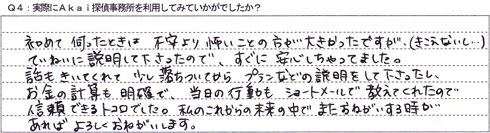 Q4：実際にAkai探偵事務所を利用してみていかがでしたか？
初めて伺ったときは不安より怖いことの方が大きかったですが、(きこえないし…)
ていねいに説明して下さったので、すぐに安心しちゃってました。
話もきいてくれて少し落ちついてから、プランなどの説明をして下さったし、
お金の計算も明確で、当日の行動も、ショートメールで教えてくれたので
信頼できるトコロでした。私のこれからの未来の中でまたおねがいする時が
あればよろしくおねがいします。